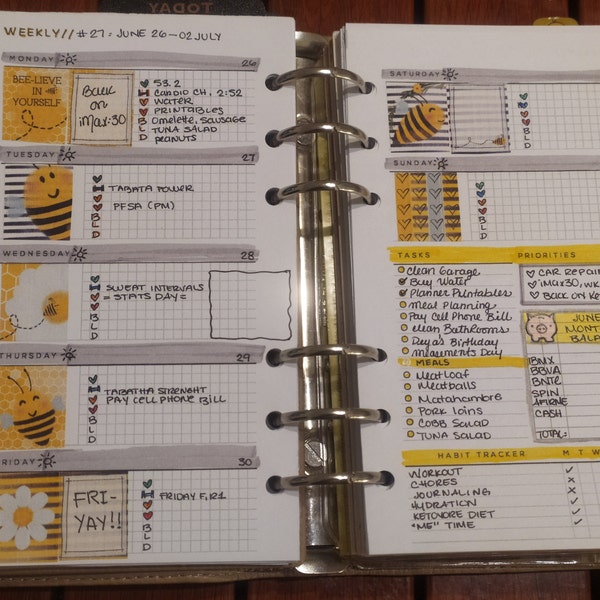 TODAY
WEEKLY// #27: JUNE 26 – 02 JULY
MONDAY 26
BEE-LIEVE
IN
YOURSELF
Back
on
iMax:30
53.2
CANDID CH, 2:52
WATER
PRINTABLES
B Omelette, SAUSAGE
L TUNA SALAD
D PEANUTS
TUESDAY 27
TABATA POWER
PFSA (PM)
B
L
D
WEDNESDAY 28
SWEAT INTERVALS
= STATS DAY =
B
L
D
THURSDAY 29
TABATHA STRENGHT
PAY CELL PHONE BILL
B
L
D
FRIDAY 30
FRI-
YAY!!
FRIDAY F.1R1
B
L
D
SATURDAY
B
L
D
SUNDAY
B
L
D
TASKS
Clean Garage
Buy Water
Planner Printables
Meal Planning
Pay Cell Phone Bill
Clean Bathrooms
Daya's Birthday
PRIORITIES
CAR REPAIR
iMAX30, WK
BACK ON KE
JUNE
MONT
BALA
IBNX
BBVA
BNTR
SPIN
CASH
TOTAL:
MEALS
Meatloaf
Meatballs
Matahambre
Pork loins
COBB Salad
TUNA SALAD
HABIT TRACKER M T W
WORKOUT ✓
CHORES ×
JOURNALING ×
HYDRATION ✓
KETOVORE DIET ✓
"ME" TIME ✓